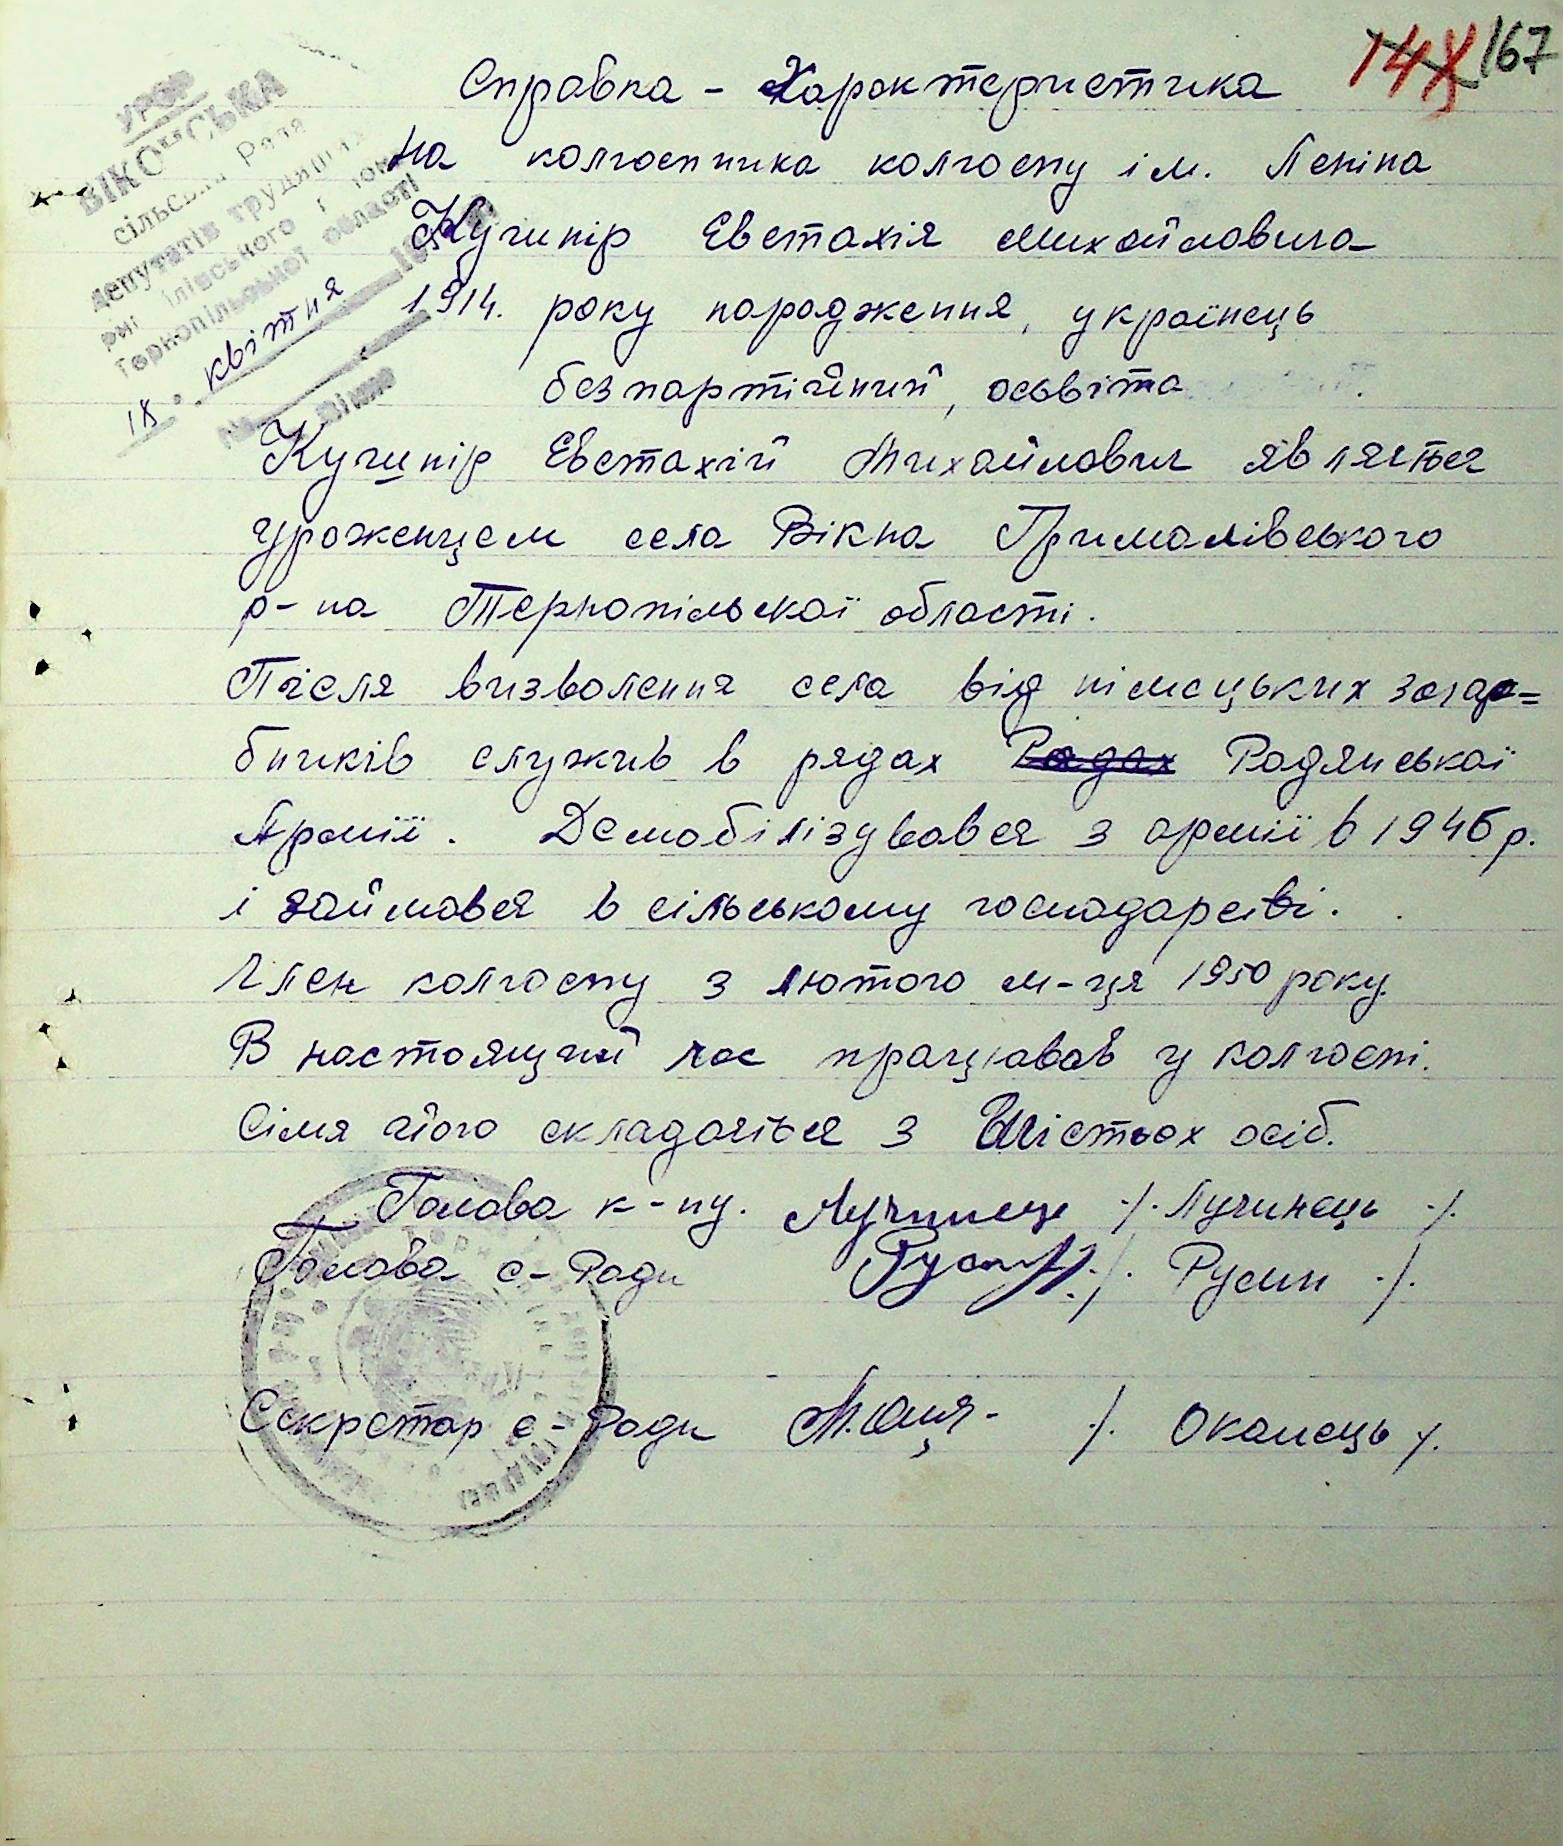 167
Справка - Характеристика
на колгоспника колгоспу ім. Леніна
Кучинір Евстахія Михайловича
1914. року народження, українець
безпартійний, осьвіта
УРСР
ВІКОНСЬКА
сільська Рада
депутатів трудящих
Тернопільської області
18 квітня
Кучинір Евстахій Михайлович являється
уроженцем села Вікна Гримайлівського
р-на Тернопільскої області.
Після визволення села від німецьких загар=
бників служив в рядах Радах Радянської
Армії. Демобілізувався з армії в 1946 р.
і займався в сільському господарстві.
Член колгоспу з лютого м-ця 1950 року
В настоящий час працював у колгоспі.
Сімя його складається з Шістьох осіб.
Голова к-пу. Лучинець /. Лучинець /.
Голова с-Ради Русин /. Русин /.
Секретар с-Ради /. Оканець /.